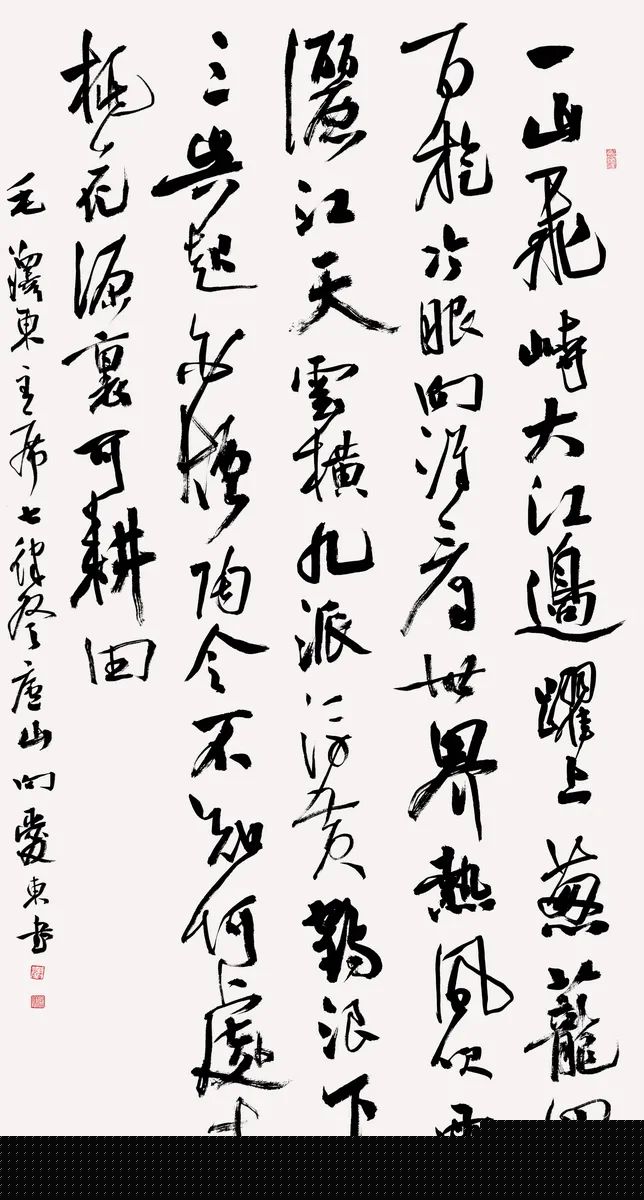 一山飛峙大江邊躍上葱蘢四
百旋冷眼向洋看世界熱風吹雨
灑江天雲橫九派浮黄鶴浪下
三吳起白煙陶令不知何處去
桃花源裏可耕田
毛澤東主席七律登廬山向愛東書